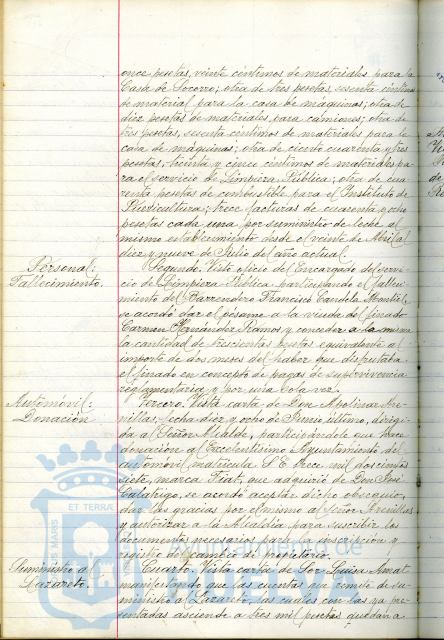 once pesetas, veinte céntimos de materiales para la
Casa de Socorro; otra de tres pesetas, sesenta céntimos
de material para la casa de máquinas; otra de
diez pesetas de materiales para camiones; otra de
tres pesetas, sesenta céntimos de materiales para la
casa de máquinas; otra de ciento cuarenta y tres
pesetas, treinta y cinco céntimos de materiales pa-
ra el servicio de Limpieza Pública; otra de cua-
renta pesetas de combustible para el Instituto de
Puericultura; trece facturas de cuarenta y ocho
pesetas cada una por suministro de leche al
mismo establecimiento desde el veinte de Abril al
diez y nueve de Julio del año actual.
Personal:
Fallecimiento.
Segundo. Visto oficio del Encargado del servi-
cio de Limpieza Pública participando el falleci-
miento del Barrendero Francisco Candela
se acordó dar el pésame a la viuda del finado
Carmen Hernández Ramos y conceder a la misma
la cantidad de trescientas pesetas equivalente al
importe de dos meses del haber que disfrutaba
el finado en concepto de pagas de supervivencia
reglamentaria y por una sola vez.
Automóvil:
Donación
Tercero. Vista carta de Don Apolinar Are-
nillas, fecha diez y ocho de Junio último, dirigi-
da al Señor Alcalde, participándole que hace
donación al Excelentísimo Ayuntamiento del
automóvil matrícula S.E. trece mil doscientos
siete, marca Fiat, que adquirió de Don José
Calatrigo, se acordó aceptar dicho obsequio,
dar las gracias por el mismo al Señor Arenillas
y autorizar a la Alcaldía para suscribir los
documentos necesarios para la inscripción y
registro del cambio de propietario.
Suministro al
Lazareto.
Cuarto. Vista carta de Sor Luisa Amat
manifestando que las cuentas que remite de su-
ministro al Lazareto, las cuales con las ya pre-
sentadas asciende a tres mil pesetas quedan a
ET TERRA